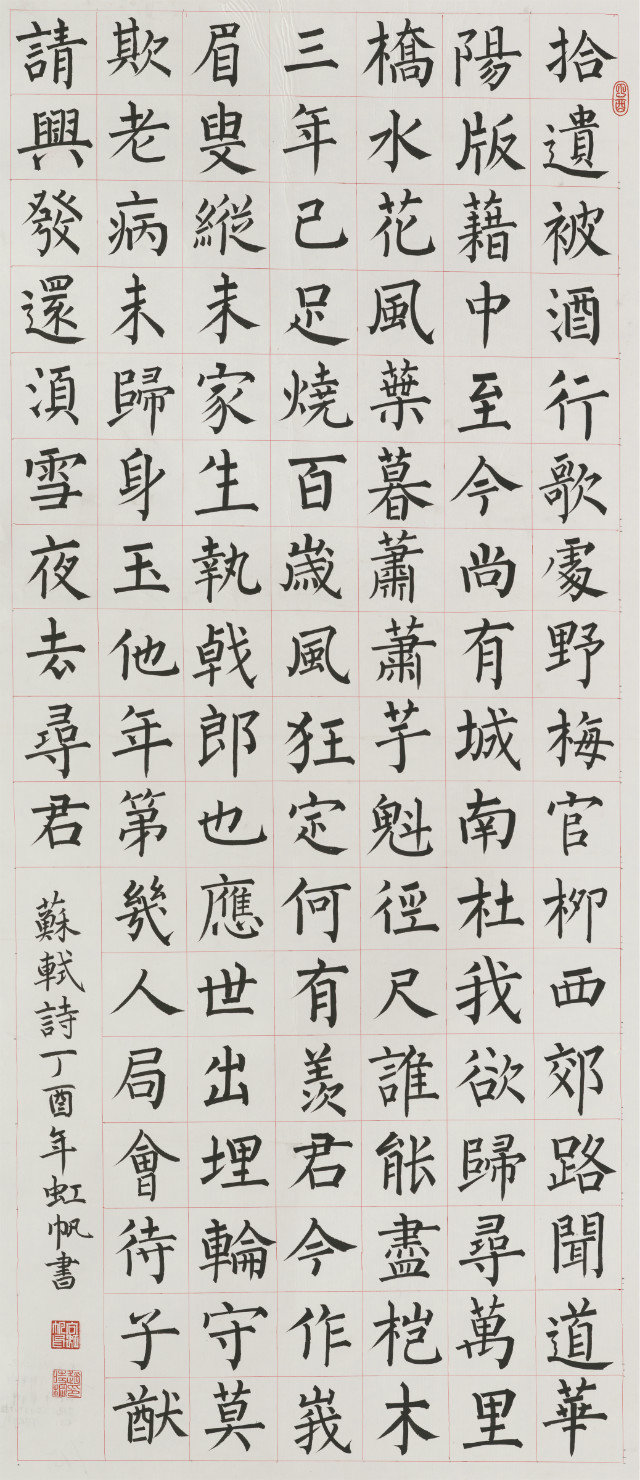 拾遺被酒行歌處野梅官柳西郊路聞道華
陽版藉中至今尚有城南杜我欲歸尋萬里
橋水花風葉暮蕭蕭芋魁徑尺誰能盡桤木
三年已足燒百歲風狂定何有羨君今作峩
眉叟縱未家生執戟郎也應世出埋輪守莫
欺老病未歸身玉他年第幾人局會待子猷
請興發還湏雪夜去尋君
蘇軾詩丁酉年虹帆書